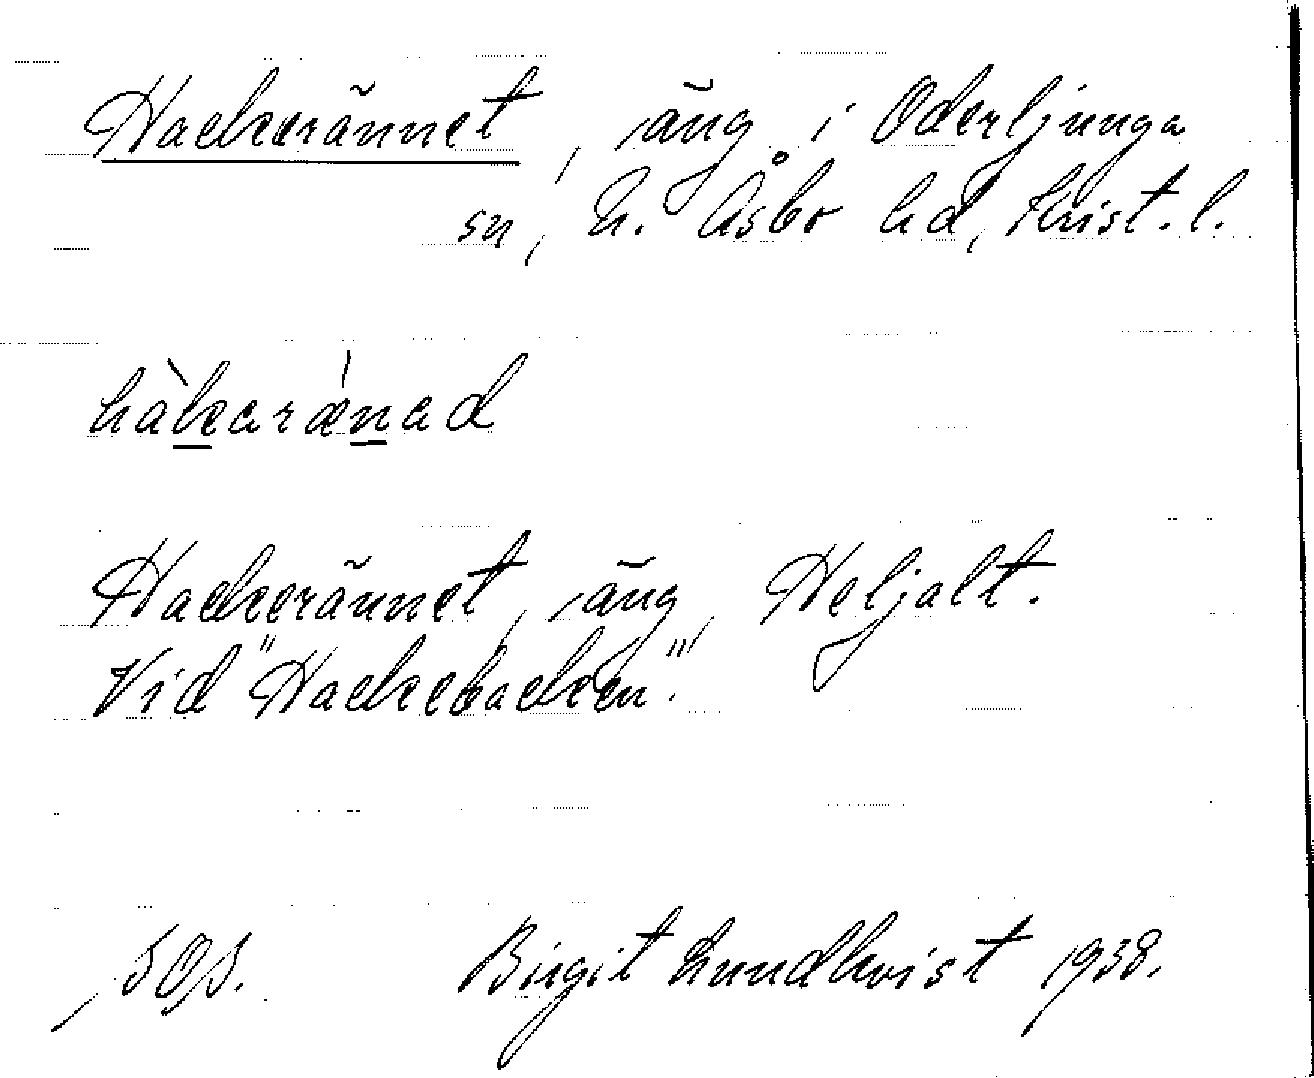 Hackerännet, äng i Oderljunga
sn, N. Åsbo hd, Krist. l.
hàkaræ̀nad
Hackerännet, äng, Heljalt.
Vid "Hackebacken".
Birgit Lundkvist 1938.